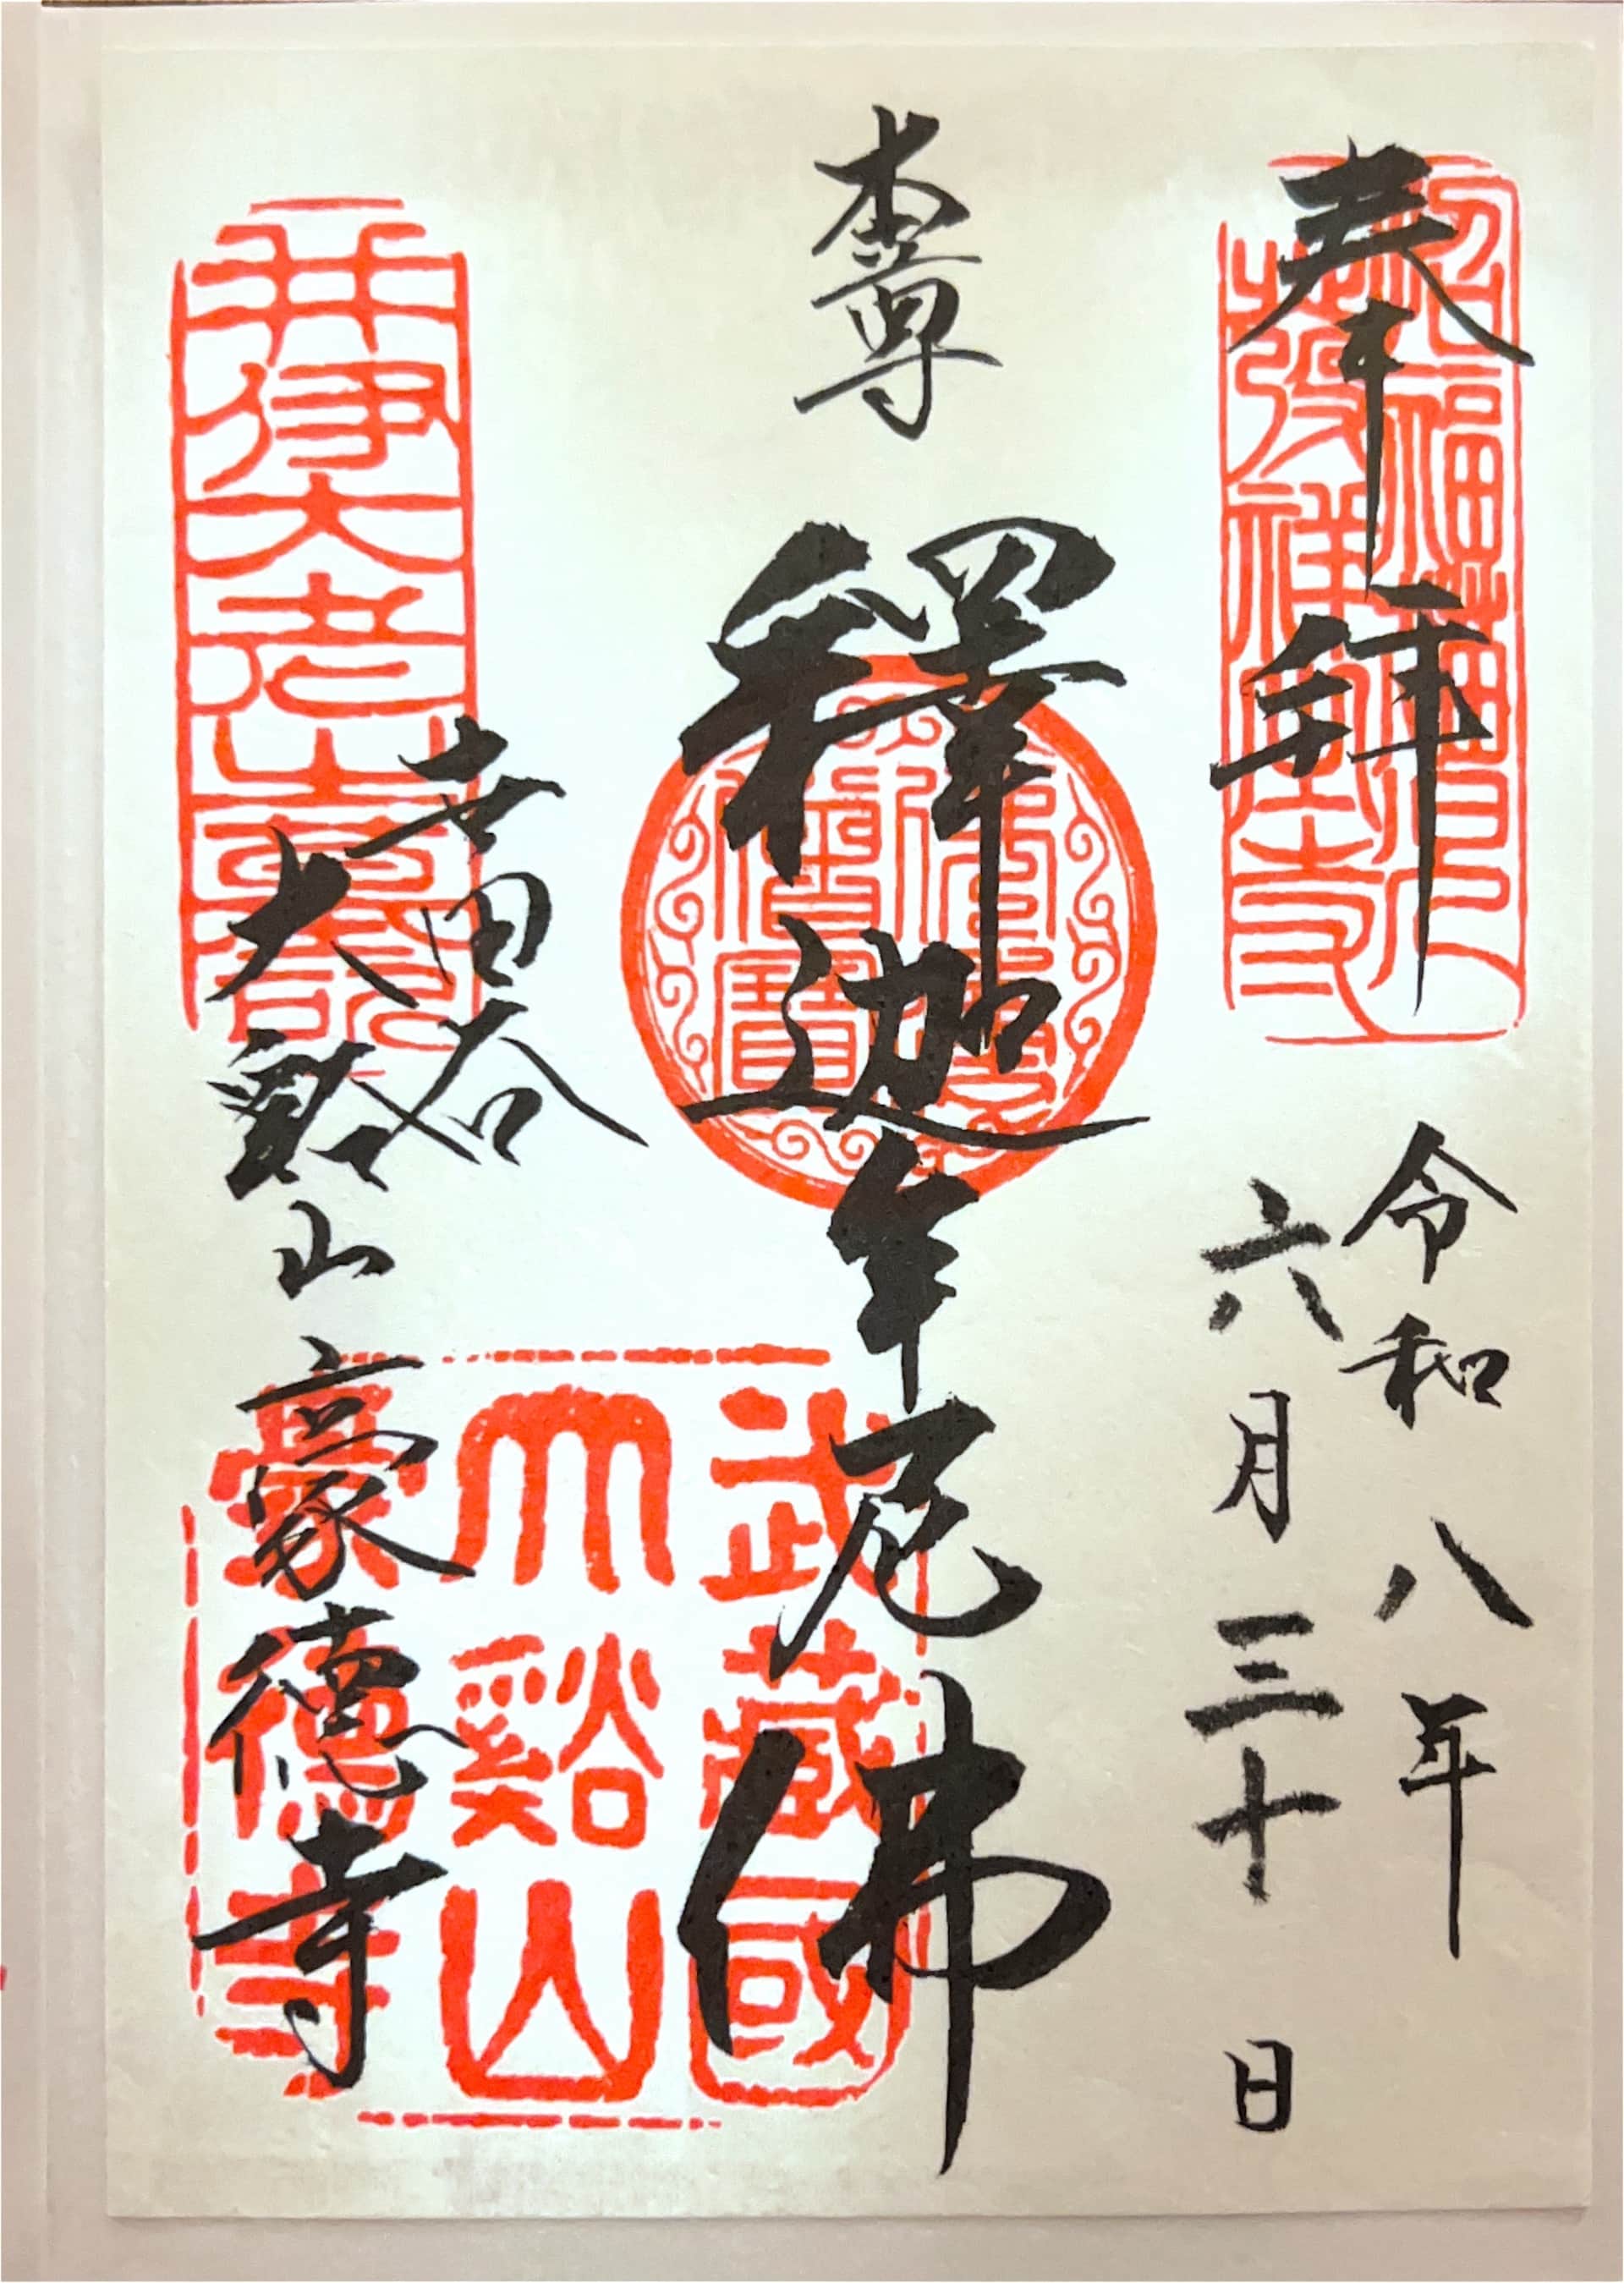 奉拝
令和八年
六月三十日
本尊
釋迦牟尼佛
世田谷
大谿山豪徳寺
招福
發祥
寺
佛法
僧寶
井伊大老
武藏國
大谿山
豪德寺